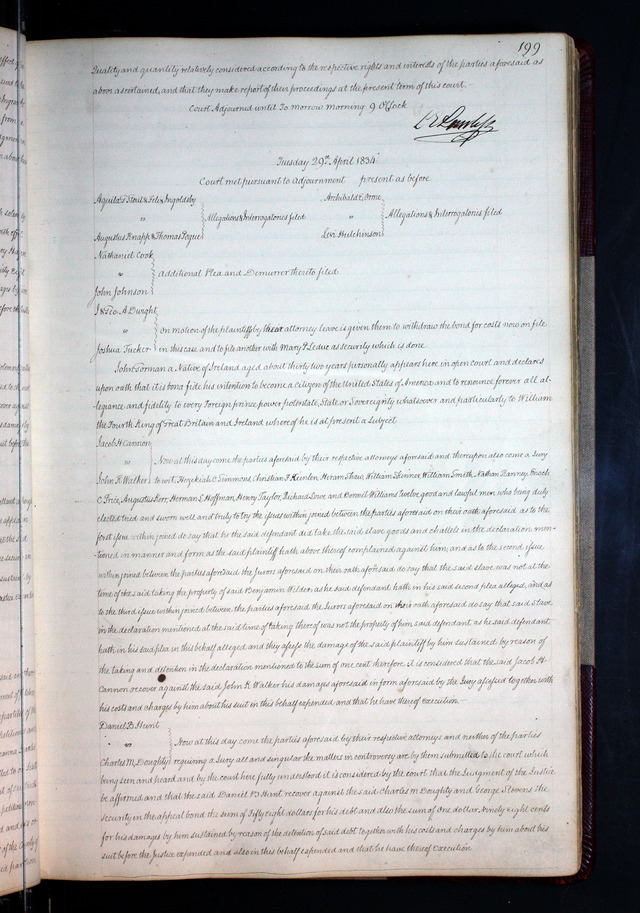 199
Quality and quantity relatively considered according to the respective rights and interests of the parties aforesaid as
above ascertained, and that they make report of their proceedings at the present term of this court.
Court Adjourned until To morrow morning 9 O'Clock
Tuesday 29th April 1834
Court met pursuant to adjournment present as before
Aquila P Stout & Felix Ingoldsby
vs
Augustus Knapp & Thomas Pogue
Allegations & Interrogatories filed
Archibald E. Orme
vs
Levi Hutchinson
Allegations & Interrogatories filed
Nathaniel Cook
vs
John Johnson
additional Plea and Demurrer thereto filed
J & Geo. A Dwight
vs
Joshua Tucker
on motion of the plaintiffs by their attorney leave is given them to withdraw the bond for costs now on file
in this case and to file another with Mary P. Leduc as security which is done
John Gorman a Native of Ireland aged about thirty two years personally appears here in open court and declares
upon oath that it is bona fide his intention to become a citizen of the United States of America and to renounce forever all al-
legiance and fidelity to every Foreign prince power potentate State or Sovereignty whatsover and particularly to William
the Fourth King of Great Britain and Ireland whereof he is at present a Subject
Jacob H Cannon
vs
John K Walker
Now at this day come the parties aforesaid by their respective attorneys aforesaid and thereupon also come a Jury
to wit. Hezekiah C Simmons, Christian F Hunten Heram Shaw, William Skinner, William Smith, Nathan Ranney, Enoch
C. Price, Augustus Kerr, Herman S. Hoffman, Henry Taylor, Richard Lowe and Bonnel Williams twelve good and lawful men who being duly
elected tried and sworn well and truly to try the issues within joined between the parties aforesaid on their oath aforesaid as to the
first issue within joined do say that he the said defendant did take the said slave goods and chattels in the declaration men-
tioned in manner and form as the said plaintiff hath above thereof complained against him, and as to the second issue
within joined between the parties aforesaid the Jurors aforesaid on their oath aforesaid do say that the said slave was not at the
time of the said taking the property of said Benjamin Wilder as he said defendant hath in his said second plea alleged, and as
to the third issue within joined between the parties aforesaid the Jurors aforesaid on their oath aforesaid do say that said slave
in the declaration mentioned at the said time of taking thereof was not the property of him said defendant as he said defendant
hath in his said plea in this behalf alleged and they assess the damage of the said plaintiff by him sustained by reason of
the taking and detention in the declaration mentioned to the sum of one cent therefore it is considered that the said Jacob H.
Cannon recover against the said John K. Walker his damages aforesaid in form aforesaid by the Jury assessed together with
his costs and charges by him about his suit in this behalf expended and that he have thereof execution
Daniel B. Hunt
vs
Charles M. Doughty
Now at this day come the parties aforesaid by their respective attorneys and neither of the parties
requiring a Jury all and singular the matters in controversy are by them submitted to the court which
being seen and heard and by the court here fully understood it is considered by the court that the Judgment of the Justice
be affirmed and that the said Daniel B. Hunt recover against the said Charles M Doughty and George Stevens the
security in the appeal bond the sum of Fifty eight dollars for his debt and also the sum of one dollar Ninety eight cents
for his damages by him sustained by reason of the detention of said debt together with his costs and charges by him about his
suit before the Justice expended and also in this behalf expended and that he have thereof execution